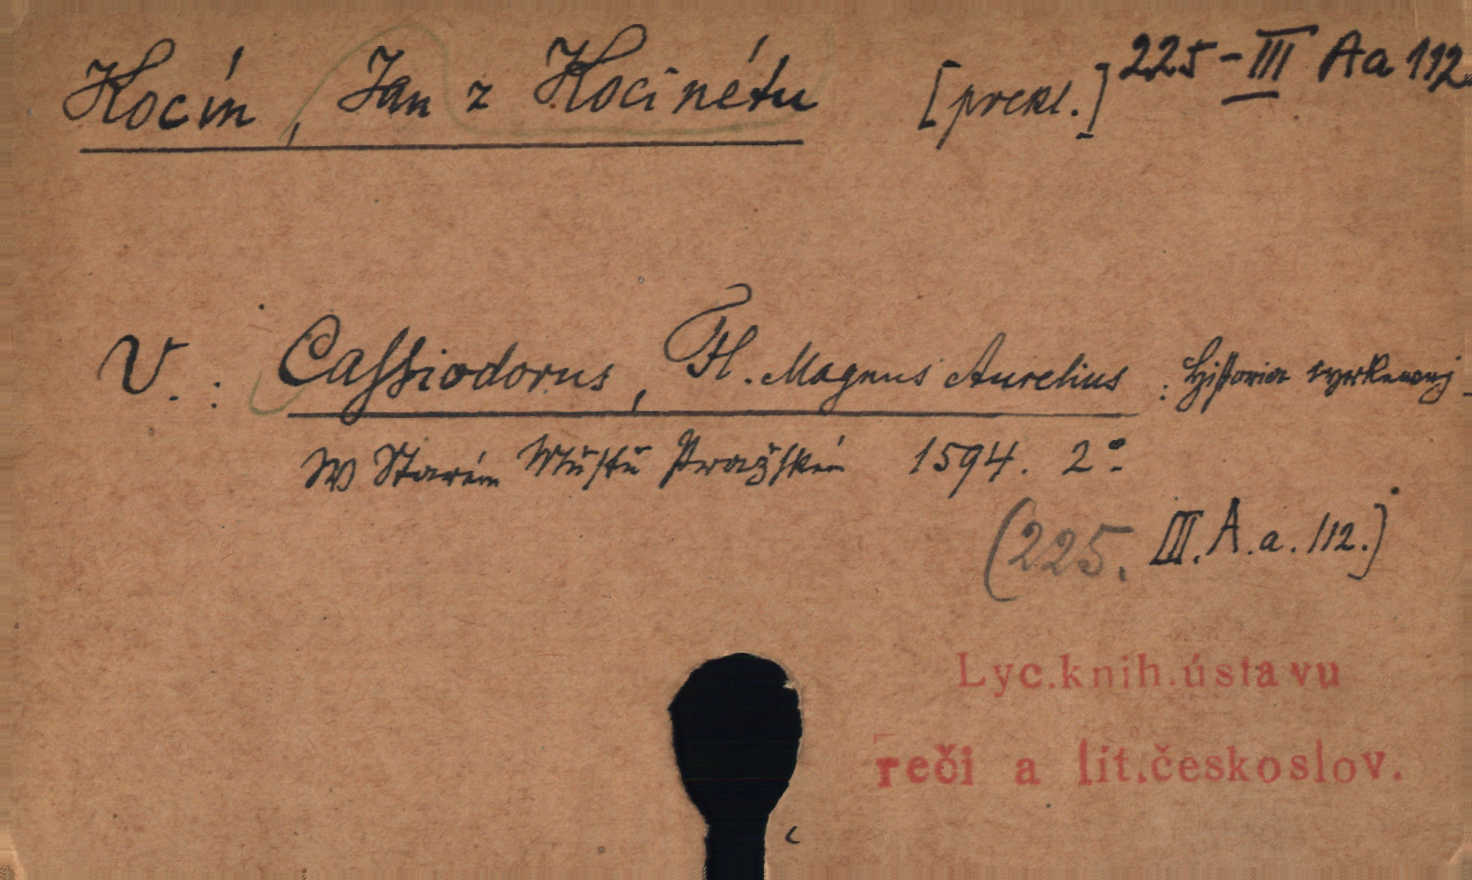 Kocín, Jan z Kocinétu [prekl.] 225-III Aa 112.
V. : Cassiodorus, Fl. Magnus Aurelius : Historia
W Starém Městě Pražském 1594. 2°.
(225. III. A. a. 112.)
Lyc.knih.ústavu
reči a lit.českoslov.